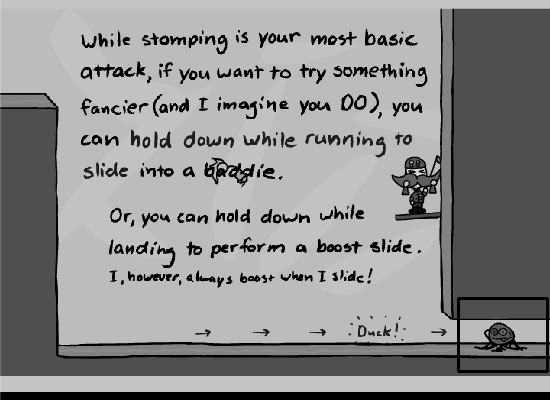 While stomping is your most basic
attack, if you want to try something
fancier (and I imagine you DO), you
can hold down while running to
slide into a baddie.
Or, you can hold down while
landing to perform a boost slide.
I, however, always boost when I slide!
→ → → Duck! →